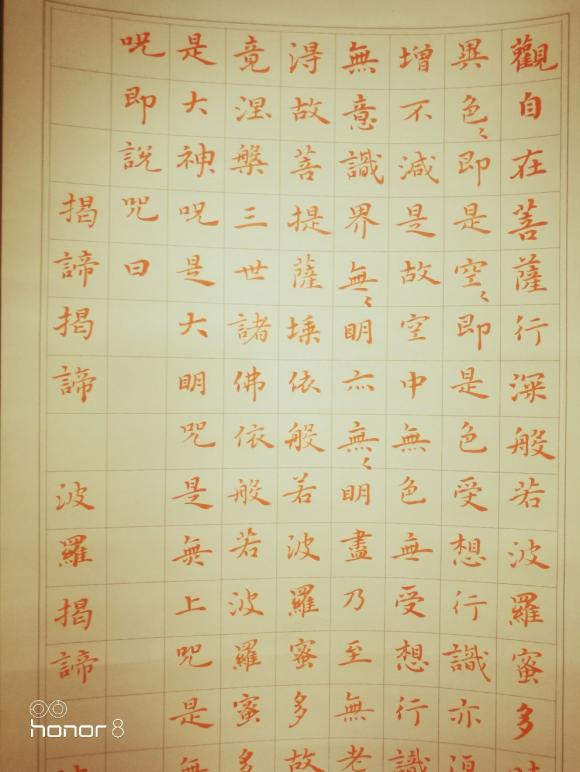 觀自在菩薩行深般若波羅蜜多時
異色〻即是空〻即是色受想行識亦
增不減是故空中無色無受想行識
無意識界無〻明亦無〻明盡乃至無老
得故菩提薩埵依般若波羅蜜多故
竟涅槃三世諸佛依般若波羅蜜多
是大神呪是大明呪是無上呪是無
呪即說呪曰
揭諦揭諦 波羅揭諦
honor 8